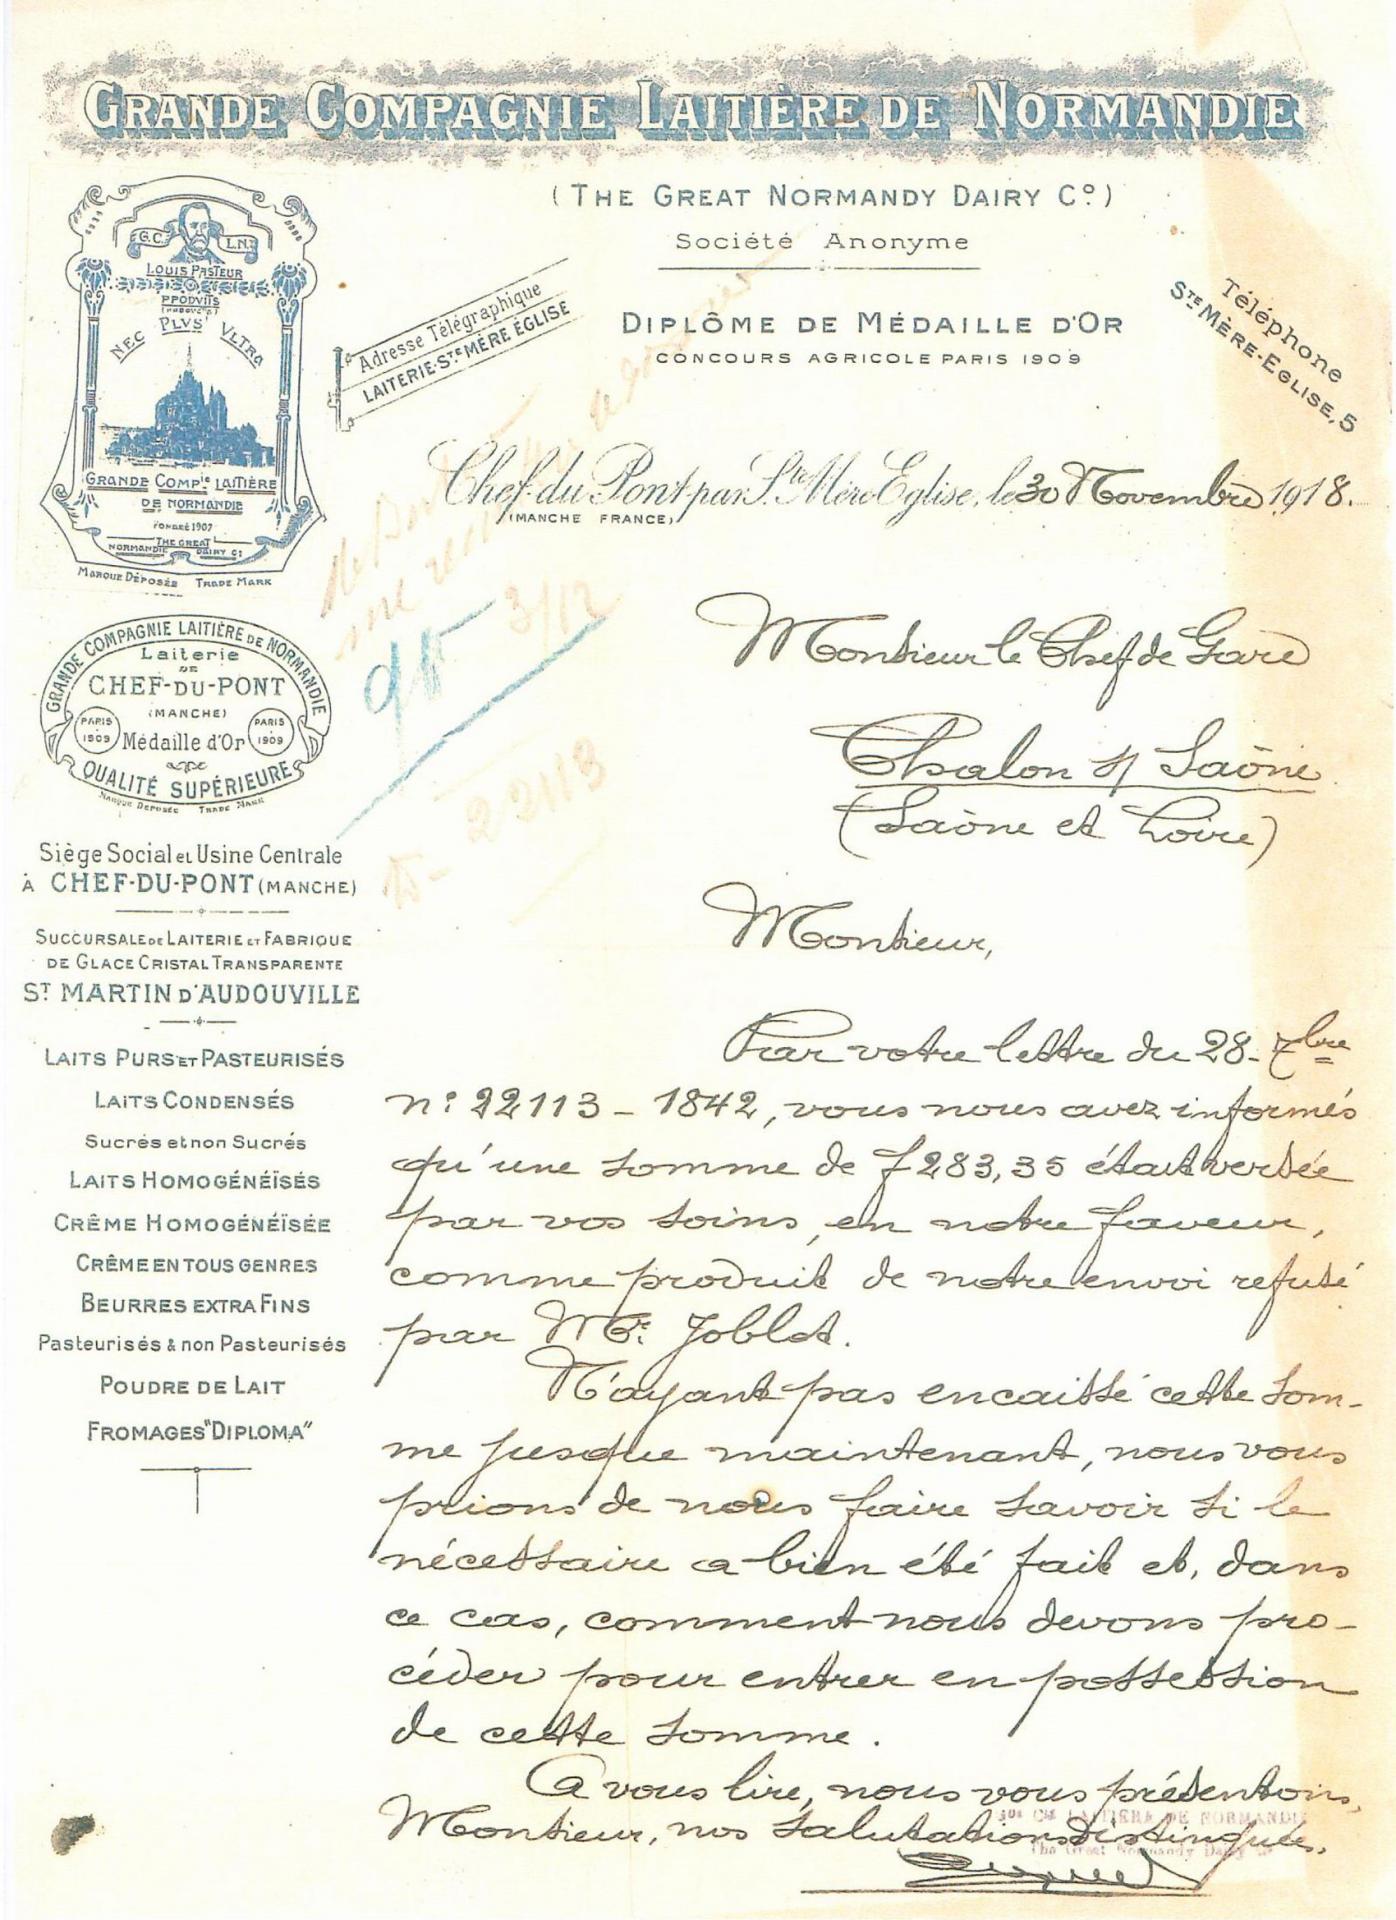 GRANDE COMPAGNIE LAITIÈRE DE NORMANDIE
(THE GREAT NORMANDY DAIRY Cº)
Société Anonyme
DIPLÔME DE MÉDAILLE D'OR
CONCOURS AGRICOLE PARIS 1909
Adresse Télégraphique
LAITERIE-STE MÈRE ÉGLISE
Téléphone
STE MÈRE-EGLISE, 5
G.C. L.N.
LOUIS PASTEUR
PRODVITS
NEC PLVS VLTRA
GRANDE COMPIE LAITIÈRE
DE NORMANDIE
FONDÉE 1907
THE GREAT
NORMANDIE DAIRY Cº
MARQUE DÉPOSÉE TRADE MARK
Chef-du-Pont par Ste Mère Eglise, le 30 Novembre 1918.
(MANCHE FRANCE)
3/12
22113
GRANDE COMPAGNIE LAITIÈRE DE NORMANDIE
Laiterie
DE
CHEF-DU-PONT
(MANCHE)
PARIS 1909 Médaille d'Or PARIS 1909
QUALITÉ SUPÉRIEURE
MARQUE DÉPOSÉE TRADE MARK
Siège Social et Usine Centrale
À CHEF-DU-PONT (MANCHE)
SUCCURSALE DE LAITERIE ET FABRIQUE
DE GLACE CRISTAL TRANSPARENTE
ST MARTIN D'AUDOUVILLE
LAITS PURS ET PASTEURISÉS
LAITS CONDENSÉS
SUCRÉS et non SUCRÉS
LAITS HOMOGÉNÉÏSÉS
CRÊME HOMOGÉNÉÏSÉE
CRÊME EN TOUS GENRES
BEURRES EXTRA FINS
Pasteurisés & non Pasteurisés
POUDRE DE LAIT
FROMAGES "DIPLOMA"
Monsieur le Chef de Gare
Chalon s/ Saône
(Saône et Loire)
Monsieur,
Par votre lettre du 28-7bre
nº 22113 - 1842, vous nous avez informés
qu'une somme de f 283,35 était versée
par vos soins, en notre faveur,
comme produit de notre envoi refusé
par Mr. Joblot.
N'ayant pas encaissé cette som-
me jusque maintenant, nous vous
prions de nous faire savoir si le
nécessaire a bien été fait et, dans
ce cas, comment nous devons pro-
céder pour entrer en possession
de cette somme.
A vous lire, nous vous présentons,
Monsieur, nos salutations distinguées.
CIE LAITIÈRE DE NORMANDIE
The Great Normandy Dairy Co